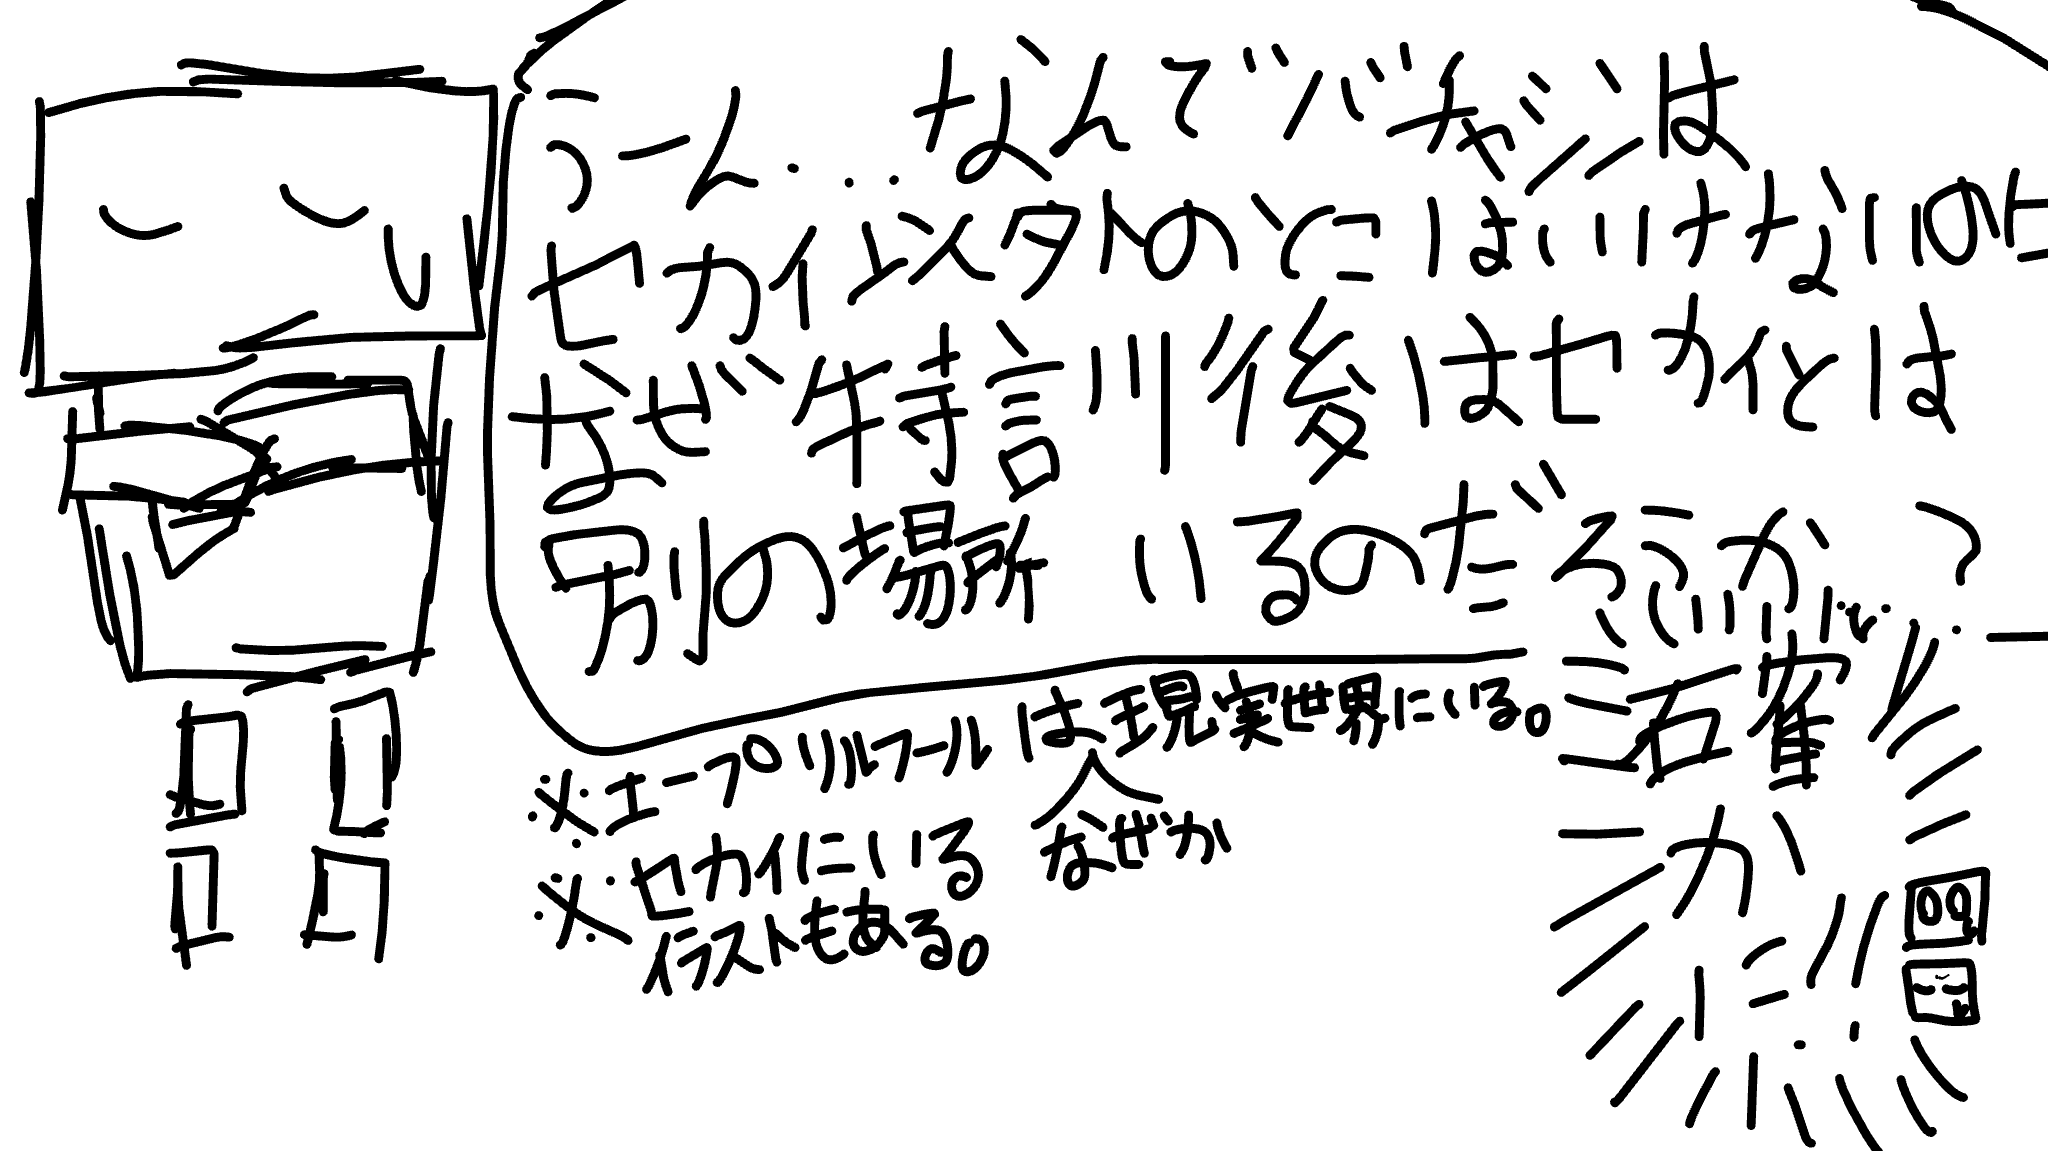 うーん...なんでバチャシンは
セカイ以外のとこにはいけないのに
なぜ特訓後はセカイとは
別の場所いるのだろうか?
確かに!!
※エープリルフールは現実世界にいる。
なぜか
※セカイにいる
イラストもある。